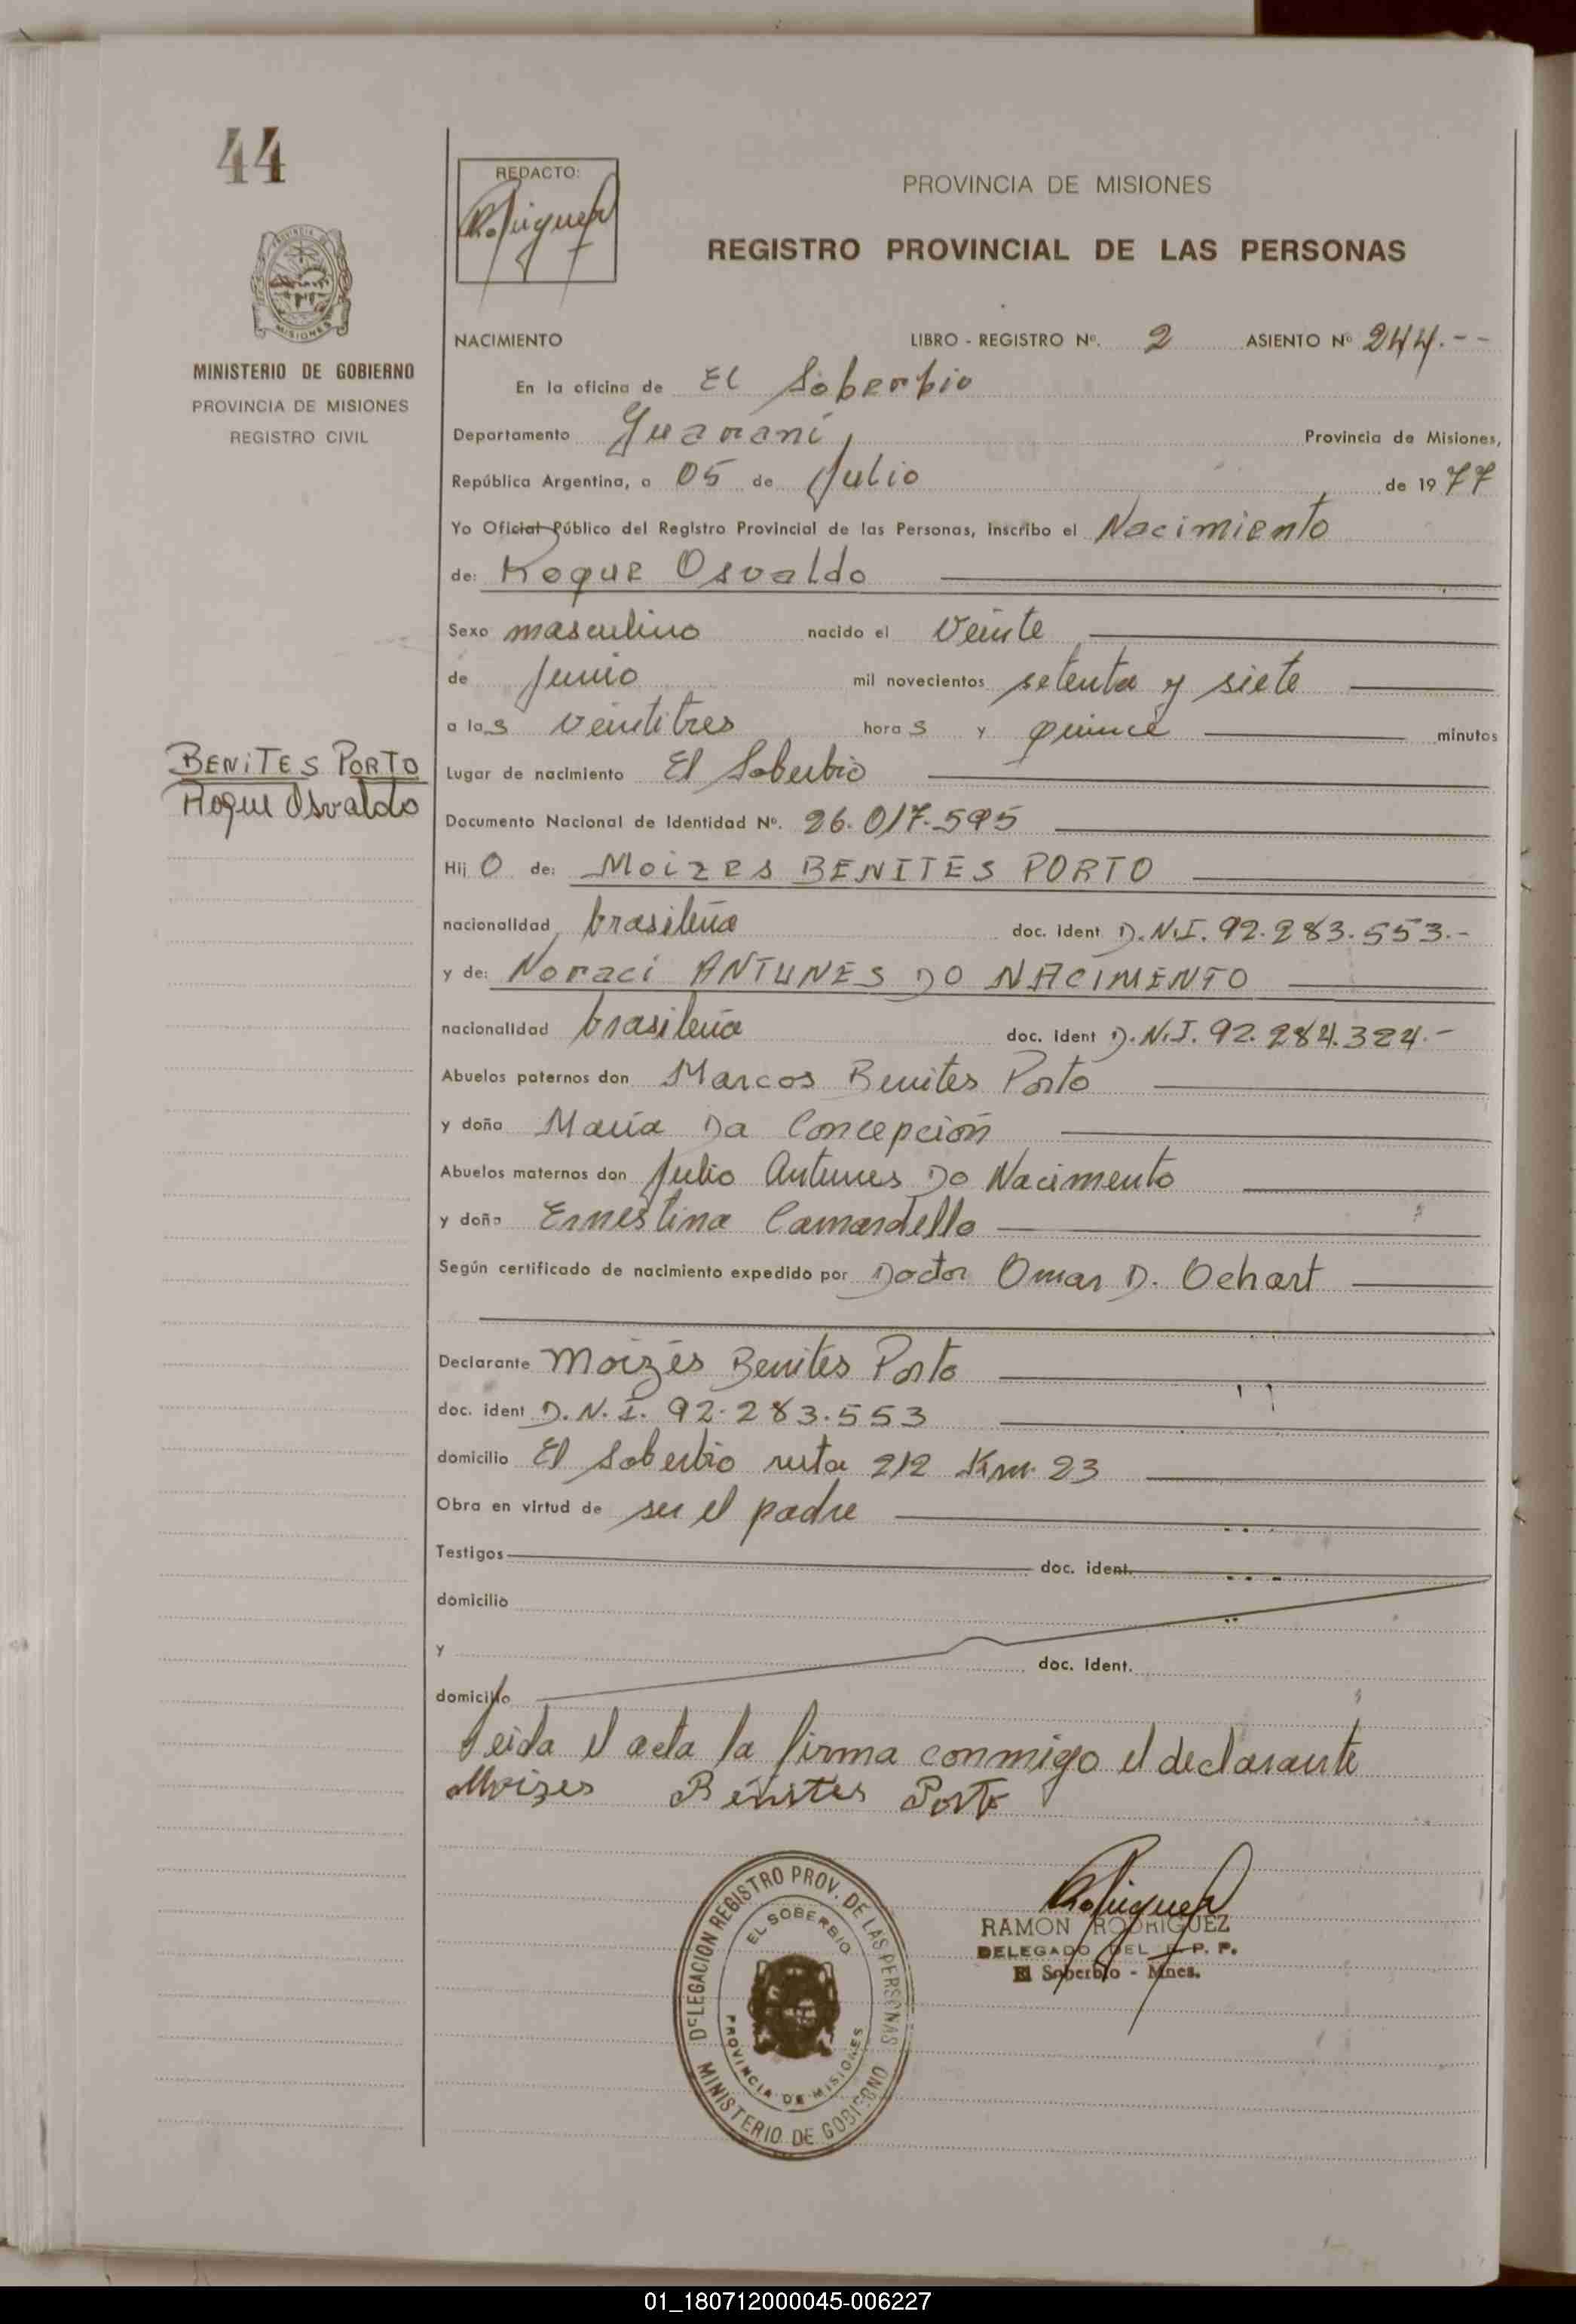 44
REDACTO:
PROVINCIA DE MISIONES
REGISTRO PROVINCIAL DE LAS PERSONAS
PROVINCIA DE
MISIONES
MINISTERIO DE GOBIERNO
PROVINCIA DE MISIONES
REGISTRO CIVIL
BENITES PORTO
Roque Osvaldo
NACIMIENTO LIBRO - REGISTRO Nº. 2 ASIENTO Nº 244.--
En la oficina de El Soberbio
Departamento Guaraní, Provincia de Misiones,
República Argentina, a 05 de Julio de 1977
Yo Oficial Público del Registro Provincial de las Personas, inscribo el Nacimiento
de: Roque Osvaldo
Sexo masculino nacido el veinte
de Junio mil novecientos setenta y siete
a las veintitres horas y quince minutos
Lugar de nacimiento El Soberbio
Documento Nacional de Identidad Nº. 26.017.595
Hijo de: Moizes BENITES PORTO
nacionalidad brasileña doc. ident D.N.I. 92.283.553.-
y de: Noraci ANTUNES DO NACIMENTO
nacionalidad brasileña doc. ident D.N.I. 92.284.324.-
Abuelos paternos don Marcos Benites Porto
y doña María Da Concepción
Abuelos maternos don Julio Antunes Do Nacimento
y doña Ernestina Camardello
Según certificado de nacimiento expedido por Doctor Omar D. Ochart
Declarante Moizés Benites Porto
doc. ident D.N.I. 92.283.553
domicilio El Soberbio ruta 212 Km. 23
Obra en virtud de ser el padre
Testigos doc. ident.
domicilio
y doc. ident.
domicilio
Leida el acta la firma conmigo el declarante
Moizes Benites Porto
DELEGACION REGISTRO PROV. DE LAS PERSONAS
EL SOBERBIO
PROVINCIA DE MISIONES
MINISTERIO DE GOBIERNO
RAMON RODRIGUEZ
DELEGADO DEL R. P. P.
El Soberbio - Mnes.
01_180712000045-006227